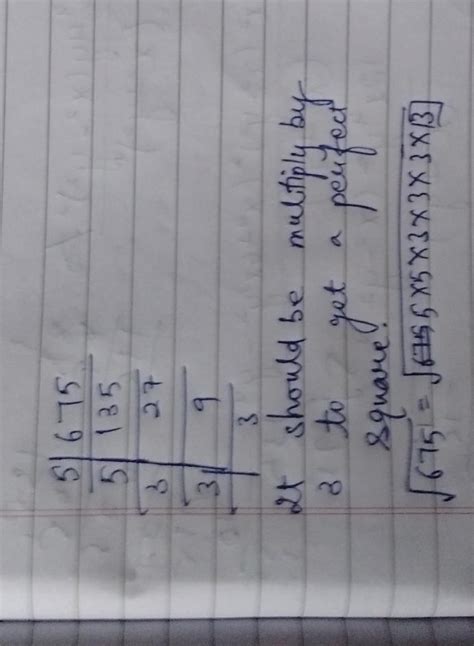 5 675
5 135
3 27
3 9
3
It should be multiply by
3 to get a perfect
square.
√675 = √5×5×3×3×3×3